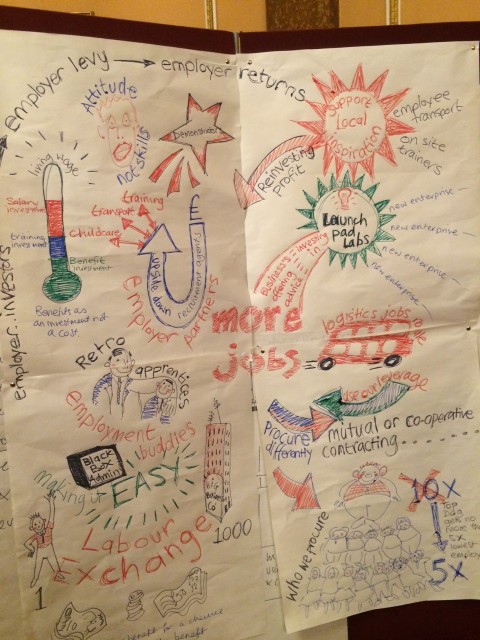 employer levy → employer returns
Attitude
not skills
Demonstrate!
Support
Local
Inspiration
employee
transport
on site
trainers
Reinvesting
profit
living wage
Salary
investment
training
investment
Benefit
investment
Benefits as
an investment not
a cost
employer..investors
training
transport
childcare
£
upside down
recruitment agents
employer partners
Launch
pad
Labs
new enterprise
new enterprise
new enterprise
new enterprise
Business's = investing in
offering
advice
more
jobs
logistics jobs
Retro
apprentices
employment
buddies
use our leverage
Procure
differently
mutual or co-operative
contracting.........
Black
Box
Admin
making it EASY
BIG
Business
Co
Labour
Exchange
1
1000
Who we procure
10X
Top
Dog
gets no
more than
5x
lowest
5X
benefit for a
benefit